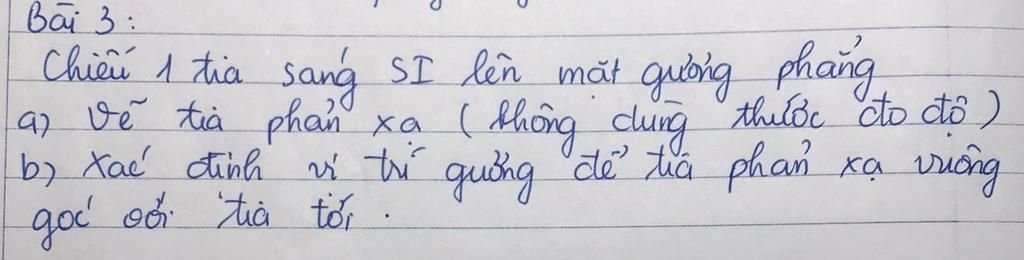 Bài 3:
Chiếu 1 tia sáng SI lên mặt gương phẳng
a) Vẽ tia phản xạ (không dùng thước đo độ)
b) Xác định vị trí gương để tia phản xạ vuông
góc với tia tới.